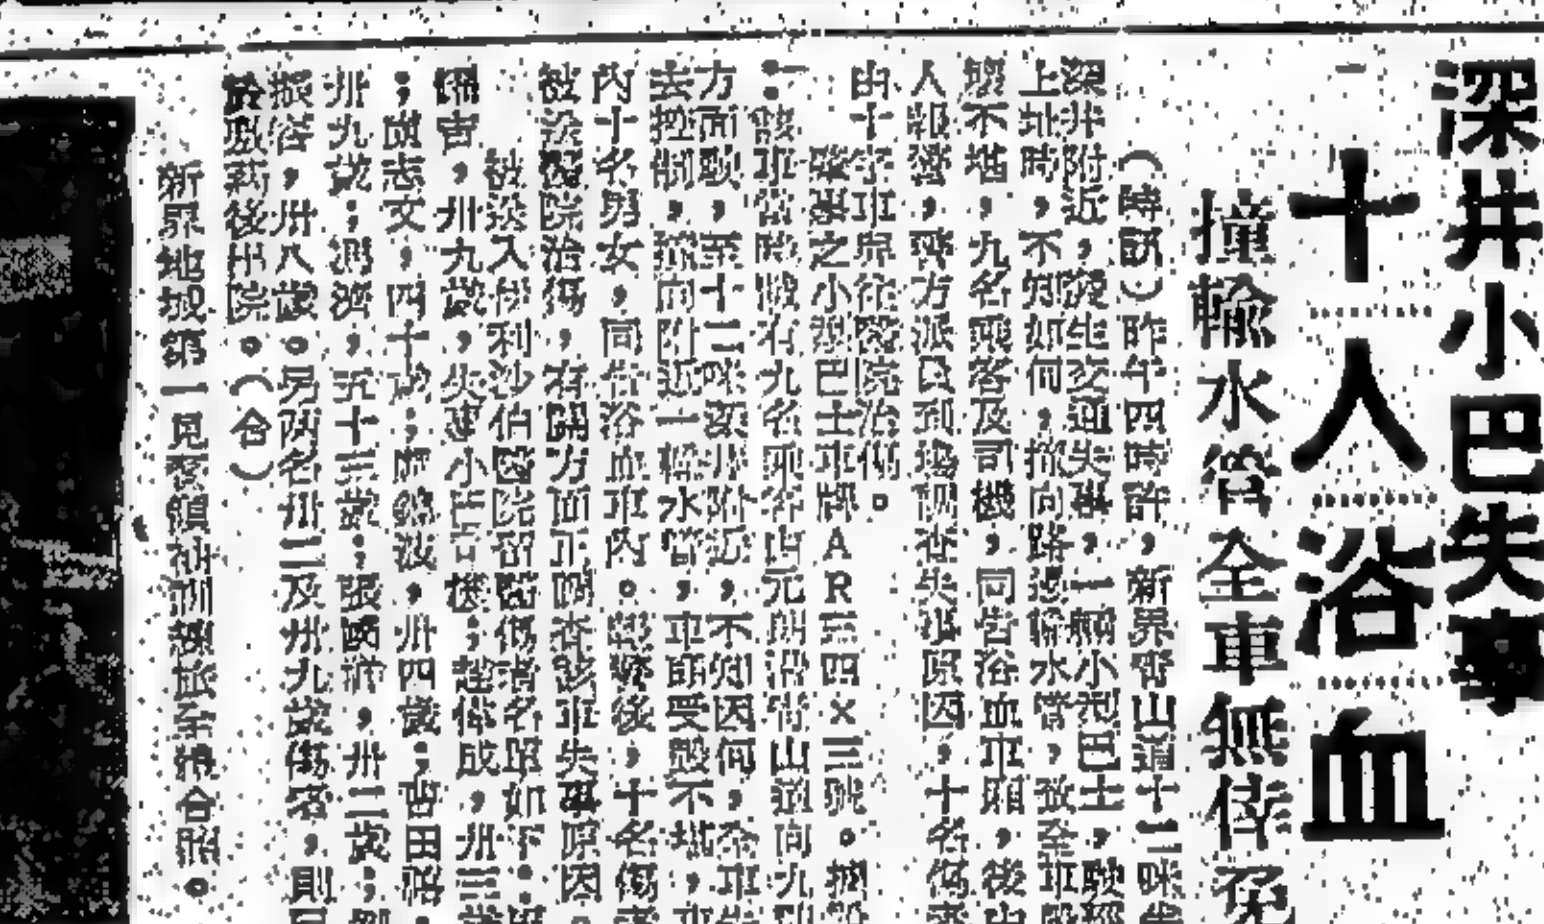 深井小巴失事
十人浴血
撞輸水管全車無倖免
（時訊）昨午四時許，新界青山道十二咪
深井附近，發生交通失事，一輛小型巴士，駛經
上址時，不知如何，撞向路邊輸水管，致全車毀
不堪，九名乘客及司機，同告浴血車廂，後由
人報警，警方派員到場調查失事原因，十名傷者
由十字車舁往醫院治傷。
肇事之小型巴士車牌ＡＲ三四×三號。據
：該車當時載有九名乘客由元朗沿青山道向九
方面駛，至十二咪深井附近，不知因何，全車失
去控制，撞向附近一輸水管，車頭受毀不堪，車
內十名男女，同告浴血車內。報警後，十名傷者
被送醫院治傷，有關方面正調查該車失事原因。
被送入伊利沙伯醫院留醫傷者名單如下：
，卅九歲，失事小巴司機；趙偉成，卅三
；志文，四十歲；波，卅四歲；田
卅九歲；，五十三歲；張，卅二歲；
，卅八歲。另兩名卅二及卅九歲傷者，則
於敷藥後出院。（合）
新界地域第一見習領袖訓練班全體合照。